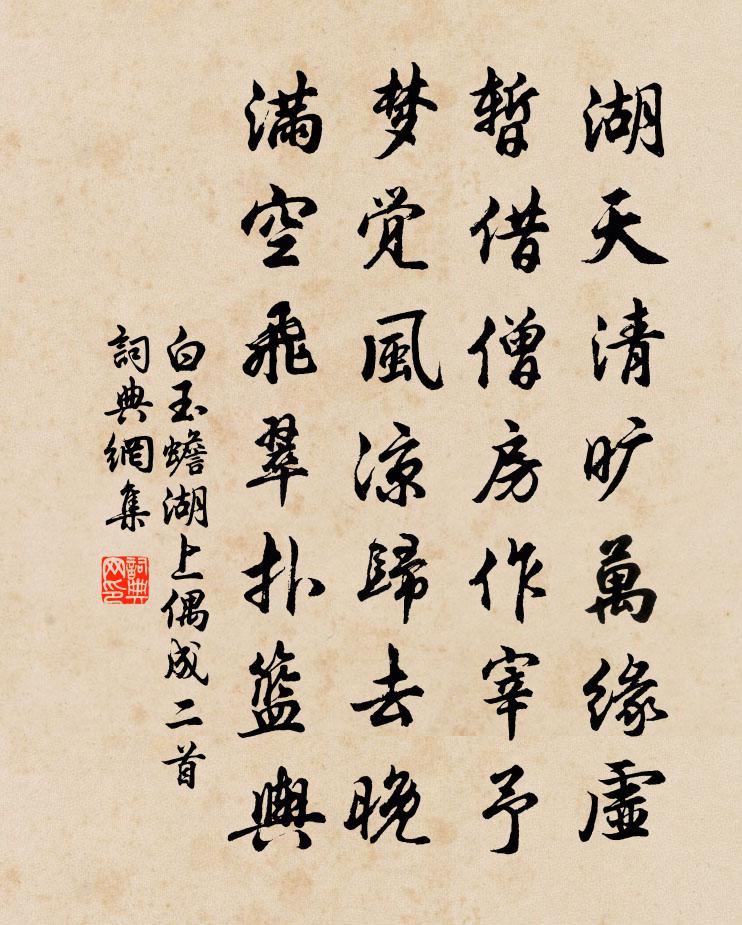 湖天清旷萬緣虛
暫借僧房作宰予
梦觉風凉歸去晚
满空飛翠扑籃輿
白玉蟾湖上偶成二首
詞典網集
詞典网印